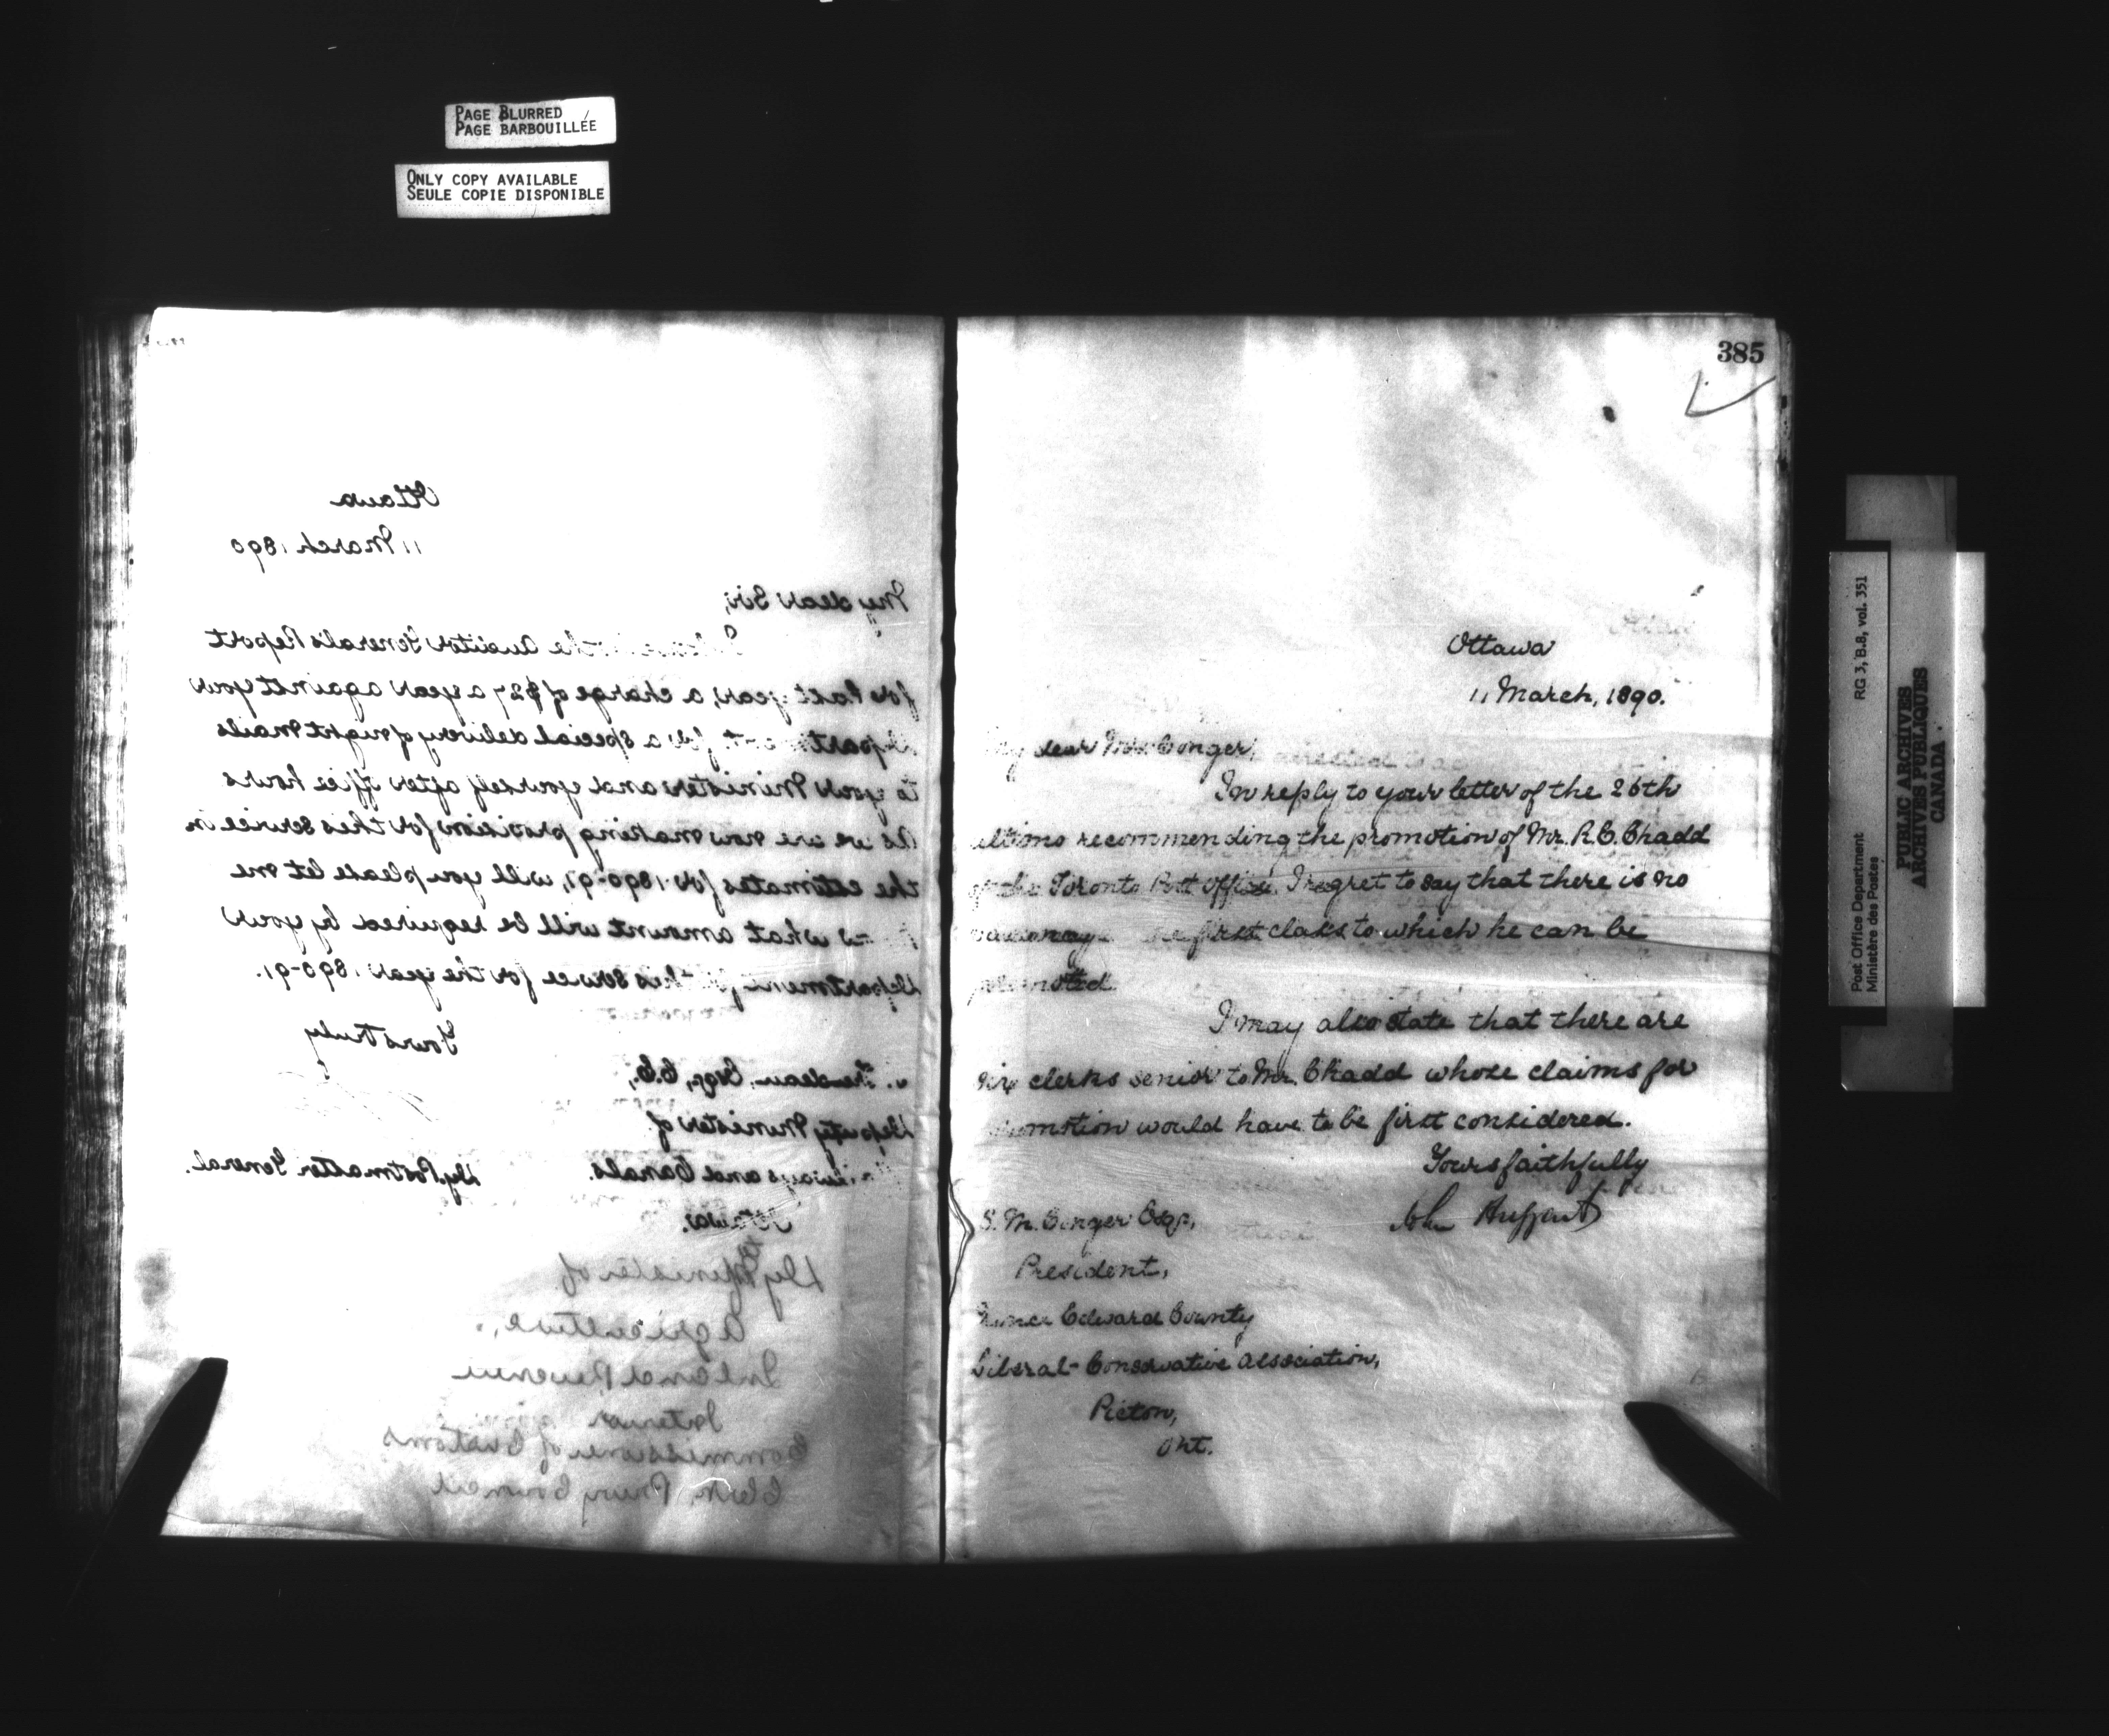 PAGE BLURRED
PAGE BARBOUILLÉE
ONLY COPY AVAILABLE
SEULE COPIE DISPONIBLE
Ottawa
11 March, 1890
My dear Sir,
the Auditor General's Report
for last year, a charge of $27 a year against your
Department for a special delivery of night mails
to your Minister and yourself after office hours
As we are now making provision for this service in
the estimates for 1890-91, will you please let me
what amount will be required by your
Department for this service for the year 1890-91.
Yours truly
Trudeau, Esqr., C.E.,
Deputy Minister of
Railways and Canals.
Dy. Postmaster General.
Ottawa.
Dy Minister of
Agriculture,
Inland Revenue
Interior
Commissioner of Customs
Clerk, Privy Council
385
Ottawa
11 March, 1890.
My dear Mr. Conger,
In reply to your letter of the 26th
ultimo recommending the promotion of Mr. R.C. Chadd
of the Toronto Post Office, I regret to say that there is no
vacancy the first class to which he can be
promoted.
I may also state that there are
six clerks senior to Mr. Chadd whose claims for
promotion would have to be first considered.
Yours faithfully
John Haggart
S. M. Conger Esqr,
President,
Prince Edward County
Liberal-Conservative Association,
Picton,
Ont.
Post Office Department RG 3, B.8, vol. 351
Ministère des Postes
PUBLIC ARCHIVES
ARCHIVES PUBLIQUES
CANADA